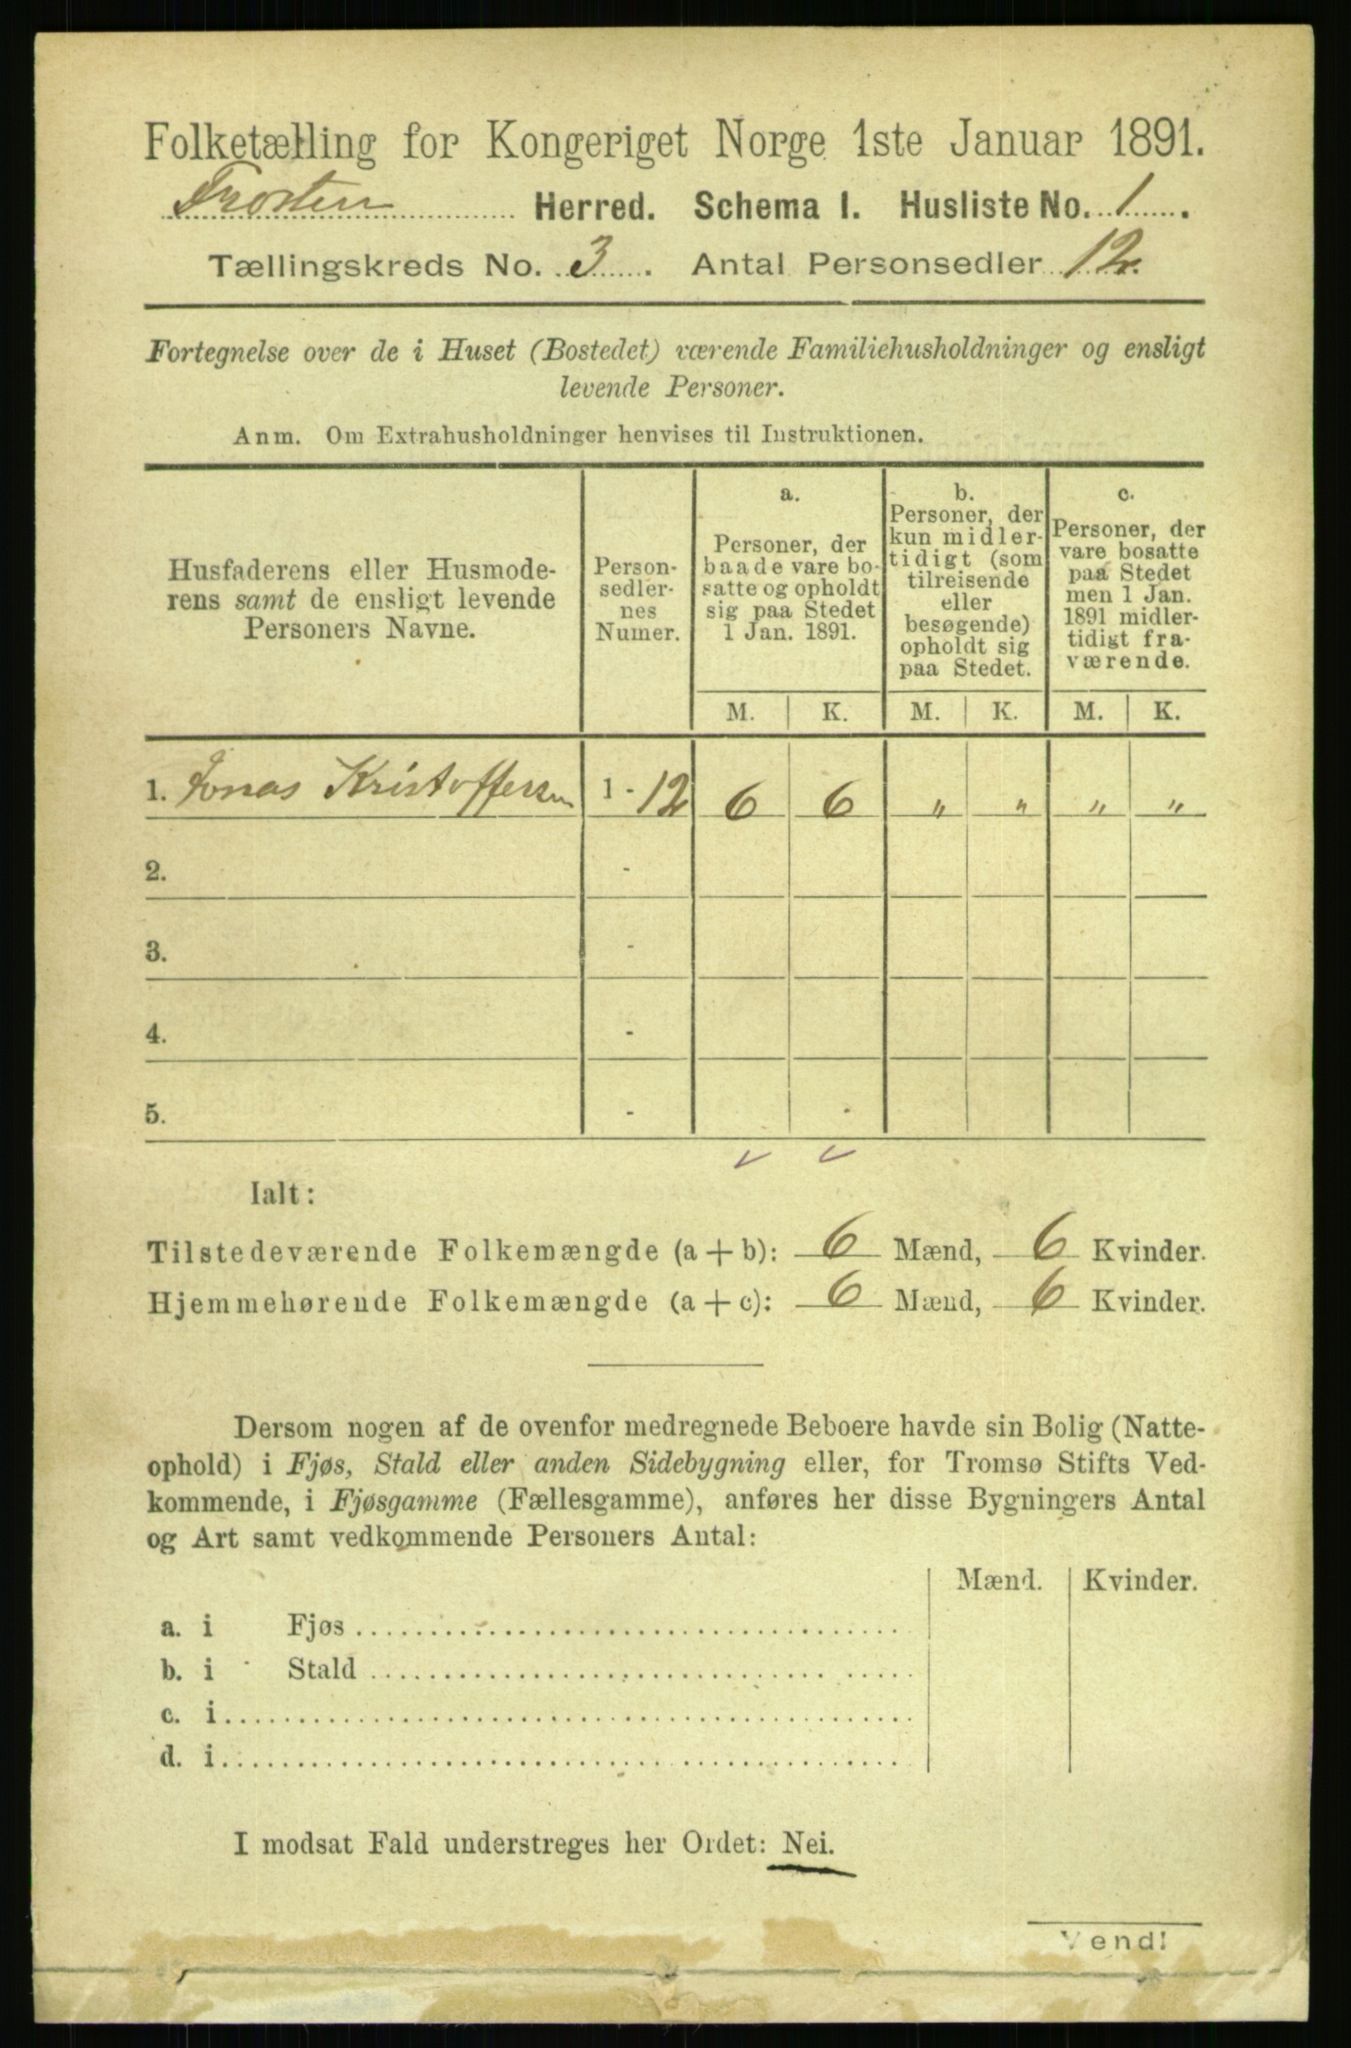 Folketælling for Kongeriget Norge 1ste Januar 1891.
Frosten Herred. Schema I. Husliste No. 1.
Tællingskreds No. 3. Antal Personsedler 12.
Fortegnelse over de i Huset (Bostedet) værende Familiehusholdninger og ensligt
levende Personer.
Anm. Om Extrahusholdninger henvises til Instruktionen.
Husfaderens eller Husmode-
rens samt de ensligt levende
Personers Navne.
Person-
sedler-
nes
Numer.
a.
Personer, der
baade vare bo-
satte og opholdt
sig paa Stedet
1 Jan. 1891.
b.
Personer, der
kun midler-
tidigt (som
tilreisende
eller
besøgende)
opholdt sig
paa Stedet.
c.
Personer, der
vare bosatte
paa Stedet
men 1 Jan.
1891 midler-
tidigt fra-
værende.
M. K. M. K. M. K.
1. Jonas Kristoffersen 1 - 12 6 6 „ „ „ „
2. -
3. -
4. -
5. -
Ialt:
Tilstedeværende Folkemængde (a + b): 6 Mænd, 6 Kvinder.
Hjemmehørende Folkemængde (a + c): 6 Mænd, 6 Kvinder.
Dersom nogen af de ovenfor medregnede Beboere havde sin Bolig (Natte-
ophold) i Fjøs, Stald eller anden Sidebygning eller, for Tromsø Stifts Ved-
kommende, i Fjøsgamme (Fællesgamme), anføres her disse Bygningers Antal
og Art samt vedkommende Personers Antal:
Mænd. Kvinder.
a. i Fjøs
b. i Stald
c. i
d. i
I modsat Fald understreges her Ordet: Nei.
Vend!